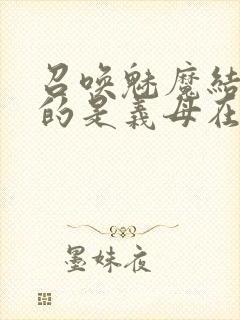 召唤魅魔结
的是義母在
墨妹夜